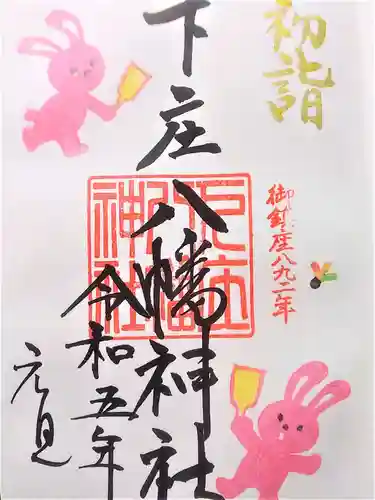 初詣
下庄八幡神社
御鎮座八九二年
令和五年
元旦